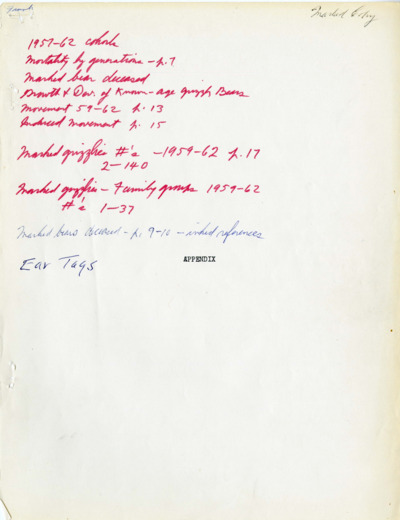 Marked Copy
1957-62 cohorts
Mortality by generations - p. 7
Marked bear deceased
Growth & Dev. of Known-age grizzly Bears
Movement 59-62 p. 13
Induced movement p. 15
Marked grizzlies #'s - 1959-62 p. 17
2-140
Marked grizzlies - Family groups 1959-62
#'s 1-37
Marked bears deceased - p. 9-10 - inked references
Ear Tags
APPENDIX